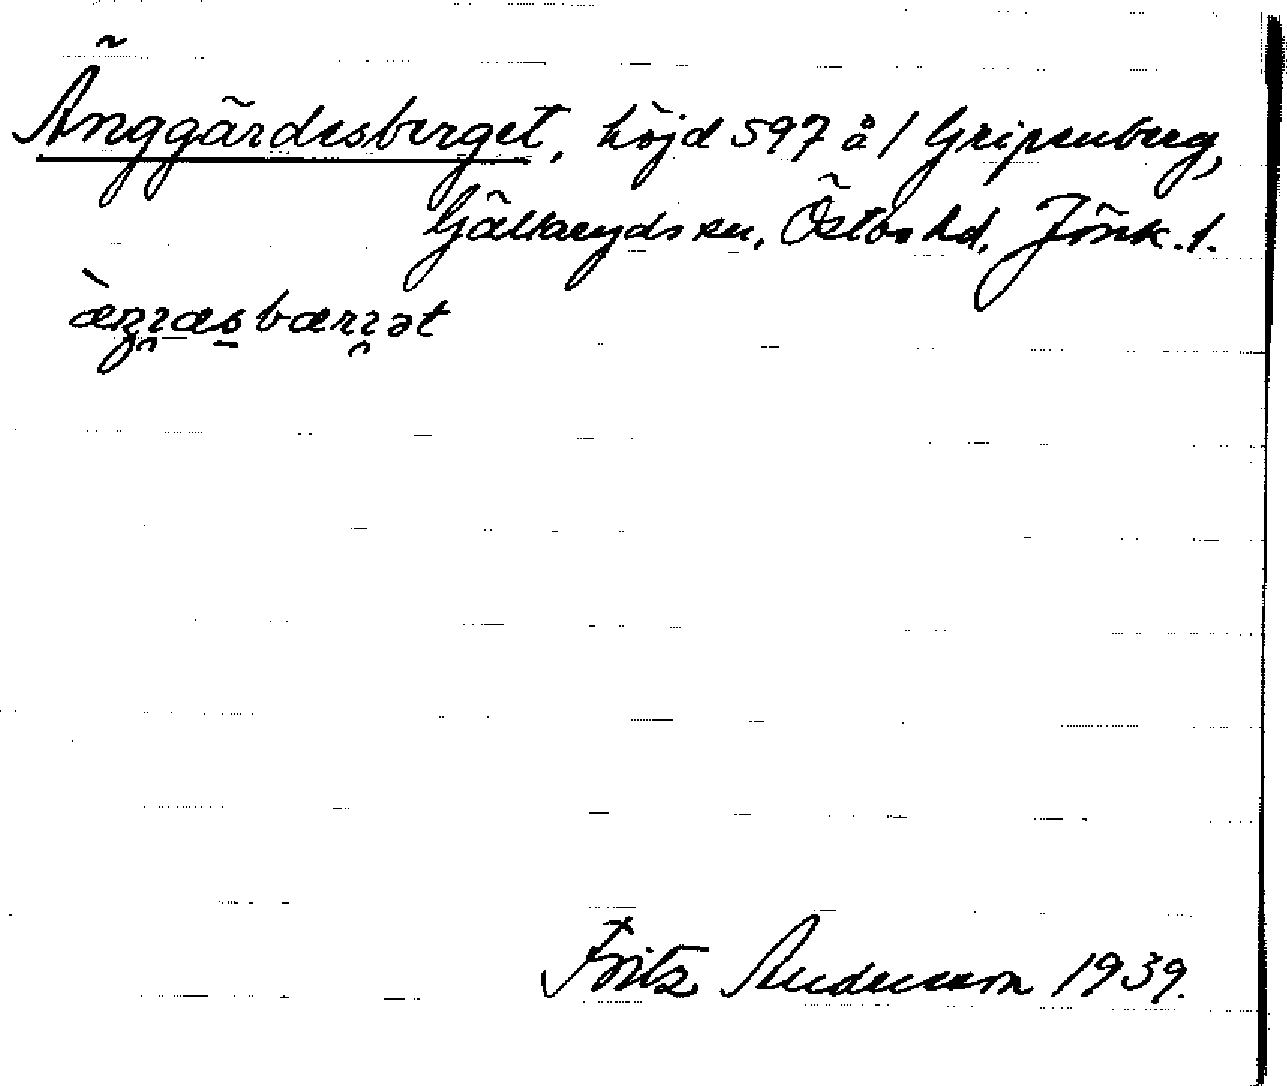 Änggärdesberget, höjd 597 å 1 Gripenberg,
Gällaryds sn, Östbo hd, Jönk. l.
Fritz Andersson 1939.